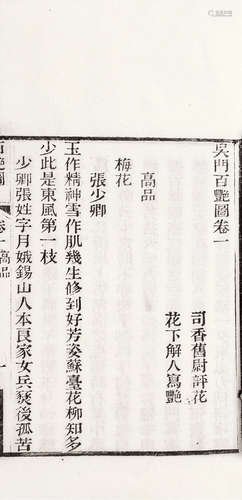 吳門百艷圖卷一
司香舊尉評花
花下解人寫艷
高品
梅花
張少卿
玉作精神雪作肌幾生修到好芳姿蘇臺花柳知多
少此是東風第一枝
少卿張姓字月娥錫山人本良家女兵燹後孤苦
卷一高品
一